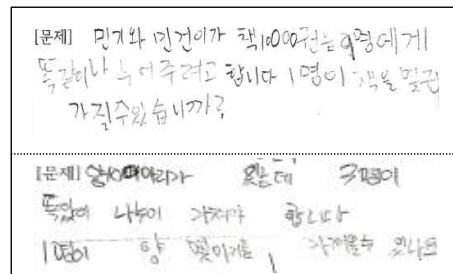 [문제] 민기와 민건이가 책10000권을 9명에게
똑같이나 누어주려고 합니다 1명이 책을 몇권
가질수있습니까?
[문제] 있는데 3명이
똑같이 나누어 가져가 합니다
1명이 양 몇마리를 가져올수 있나요